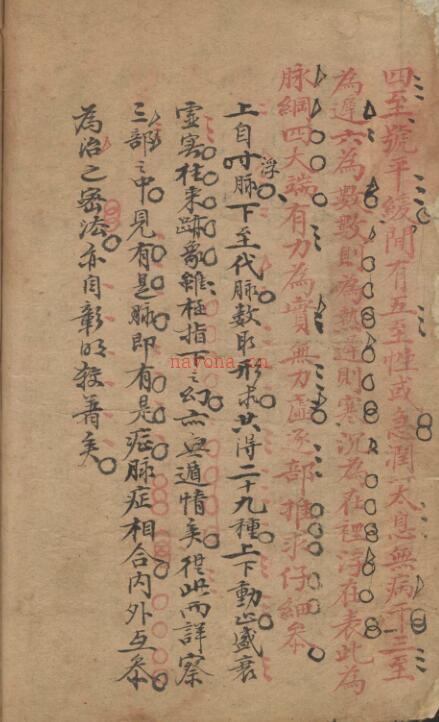 四至號平緩閒有五至性或急潤一太息無病下三至
為遲六為數數則為熱遲則寒沉為在裡浮在表此為
脉綱四大端有力為實無力虛逐部推求仔細叅
上自浮脉下至代脉数取形求共得二十九種上下動止盛衰
虛实往來跡象雖極指下之幻亦無遁情矣從此而詳察
三部之中見有是脉即有是症脉症相合內外互叅
為治之密法亦自彰明較著矣
navona.cn